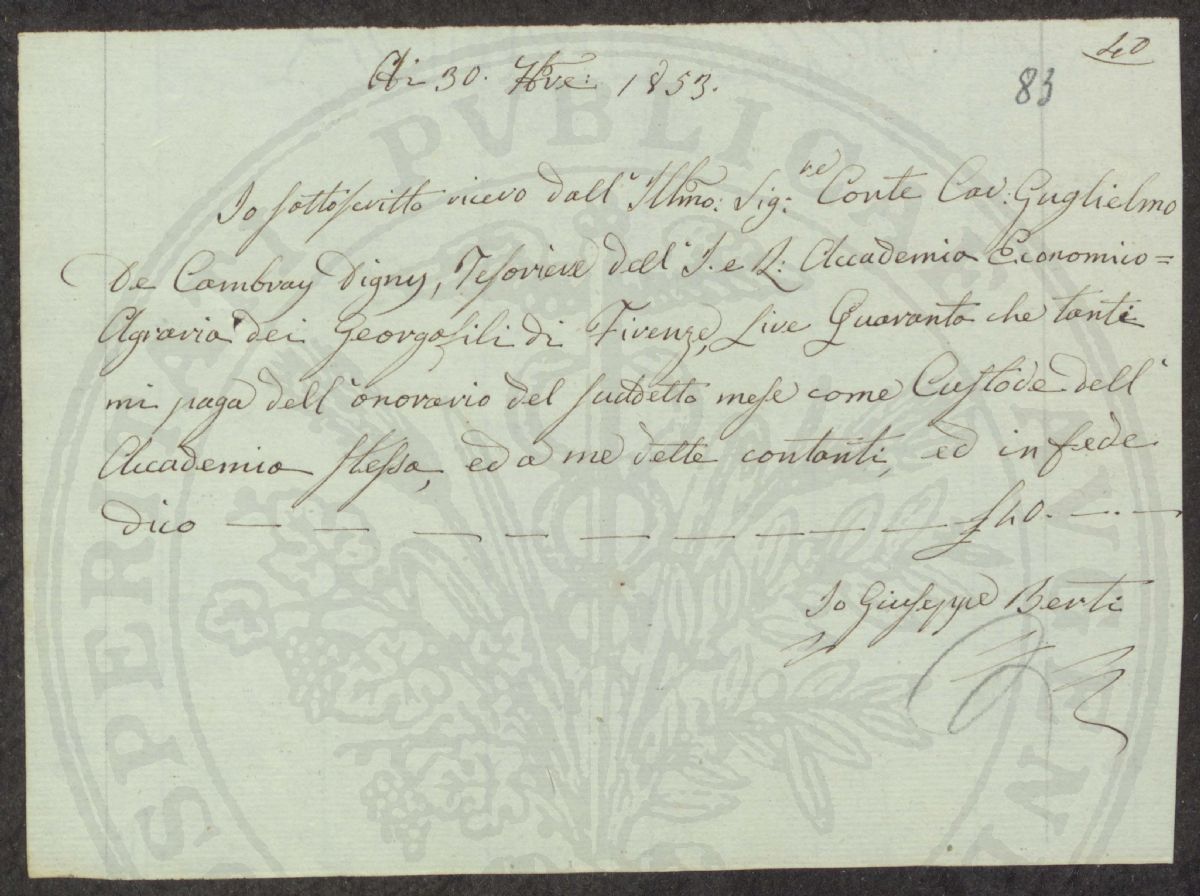 40
83
Ai 30. 9bre: 1853.
Io sottoscritto ricevo dall' Illmo: Sig:re Conte Cav: Guglielmo
De Cambray Digny, Tesoriere dell' I. e R: Accademia Economico=
Agraria dei Georgofili di Firenze, Lire Quaranta che tanti
mi paga dell' onorario del suddetto mese come Custode dell'
Accademia stessa, ed a me dette contanti, ed in fede
dico — — — — — — — — — £ 40. —.—
Io Giuseppe Berti
PROSPERITATI PUBLICAE AUGENDAE